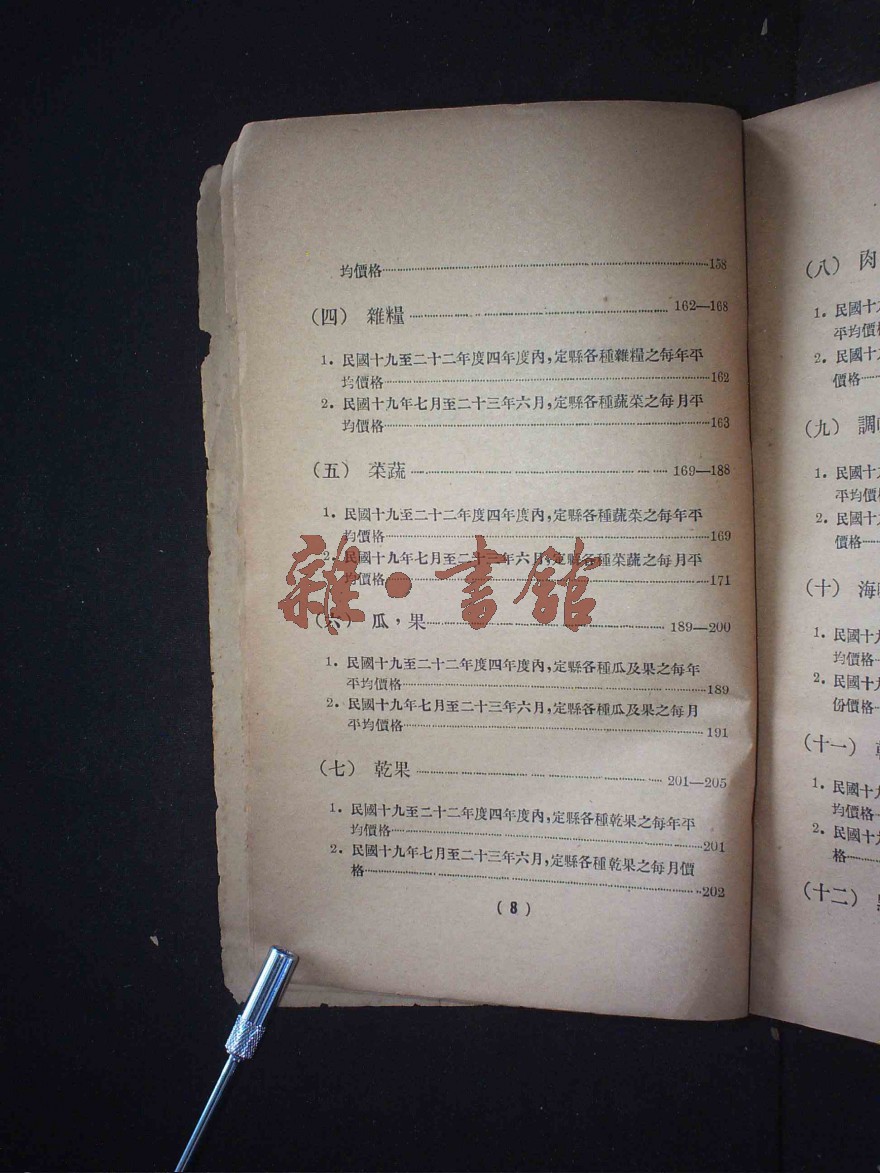 均價格……158
（四） 雜糧……162—168
1. 民國十九至二十二年度四年度內，定縣各種雜糧之每年平
均價格……162
2. 民國十九年七月至二十三年六月，定縣各種蔬菜之每月平
均價格……163
（五） 菜蔬……169—188
1. 民國十九至二十二年度四年度內，定縣各種蔬菜之每年平
均價格……169
2. 民國十九年七月至二十三年六月，定縣各種菜蔬之每月平
均價格……171
（六） 瓜，果……189—200
1. 民國十九至二十二年度四年度內，定縣各種瓜及果之每年
平均價格……189
2. 民國十九年七月至二十三年六月，定縣各種瓜及果之每月
平均價格……191
（七） 乾果……201—205
1. 民國十九至二十二年度四年度內，定縣各種乾果之每年平
均價格……201
2. 民國十九年七月至二十三年六月，定縣各種乾果之每月價
格……202
(8)
雜·書館
（八） 肉
1. 民國十
平均價
2. 民國十
價格
（九） 調
1. 民國十
平均價
2. 民國十
價格
（十） 海
1. 民國十
均價格
2. 民國十九
份價格
（十一）
1. 民國十九
均價格
2. 民國十
格
（十二）